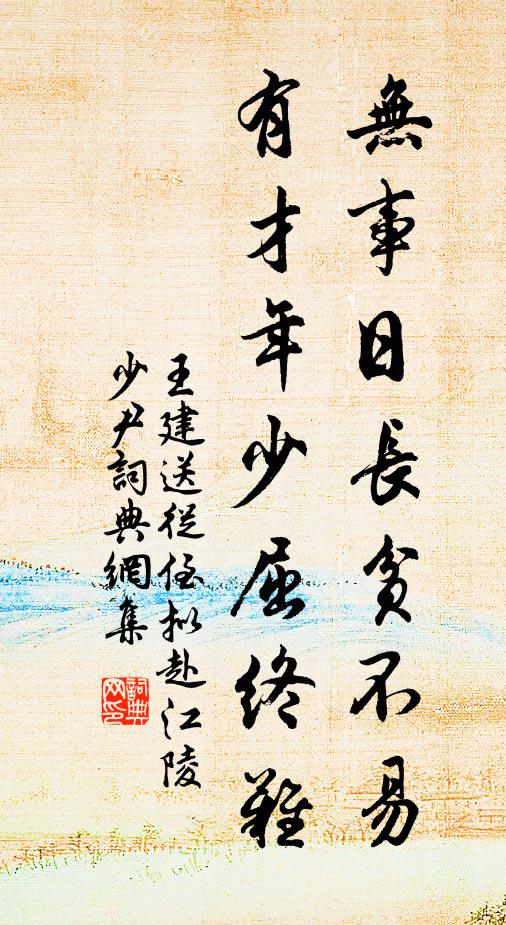 無事日長貧不易
有才年少屈終難
王建送從侄拟赴江陵
少尹詞典網集
詞典
网印